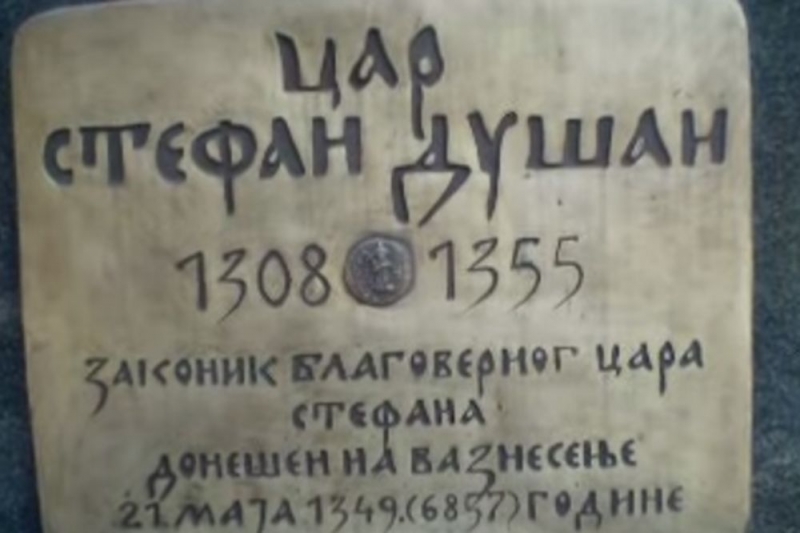 ЦАР
СТЕФАН ДУШАН
1308 1355
ЗАКОНИК БЛАГОВЕРНОГ ЦАРА
СТЕФАНА
ДОНЕШЕН НА ВАЗНЕСЕЊЕ
21. МАЈА 1349.(6857) ГОДИНЕ